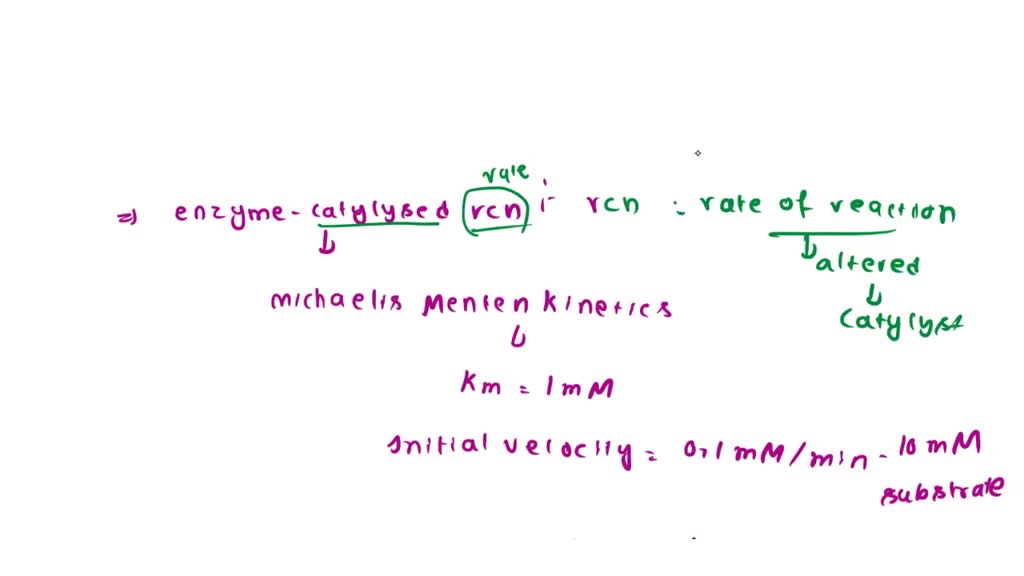 rate
⇒ enzyme-catylysed rcn :- rcn : rate of reaction
altered
catylyst
michaelis Menten kinetics
Km = 1mM
Initial velocity = 0.1mM/min - 10mM
substrate